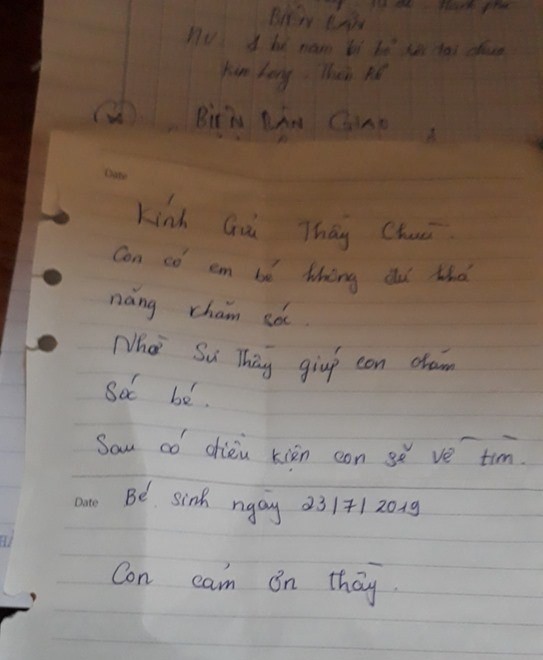 BIÊN BẢN
1 bé nam bị bỏ rơi tại chùa
BIÊN BẢN GIAO
Date
Kính Gửi Thầy Chùa.
Con có em bé không đủ khả
năng chăm sóc.
Nhờ Sư Thầy giúp con chăm
sóc bé.
Sau có điều kiện con sẽ về tìm.
Date Bé sinh ngày 23/7/2019
Con cảm ơn thầy.